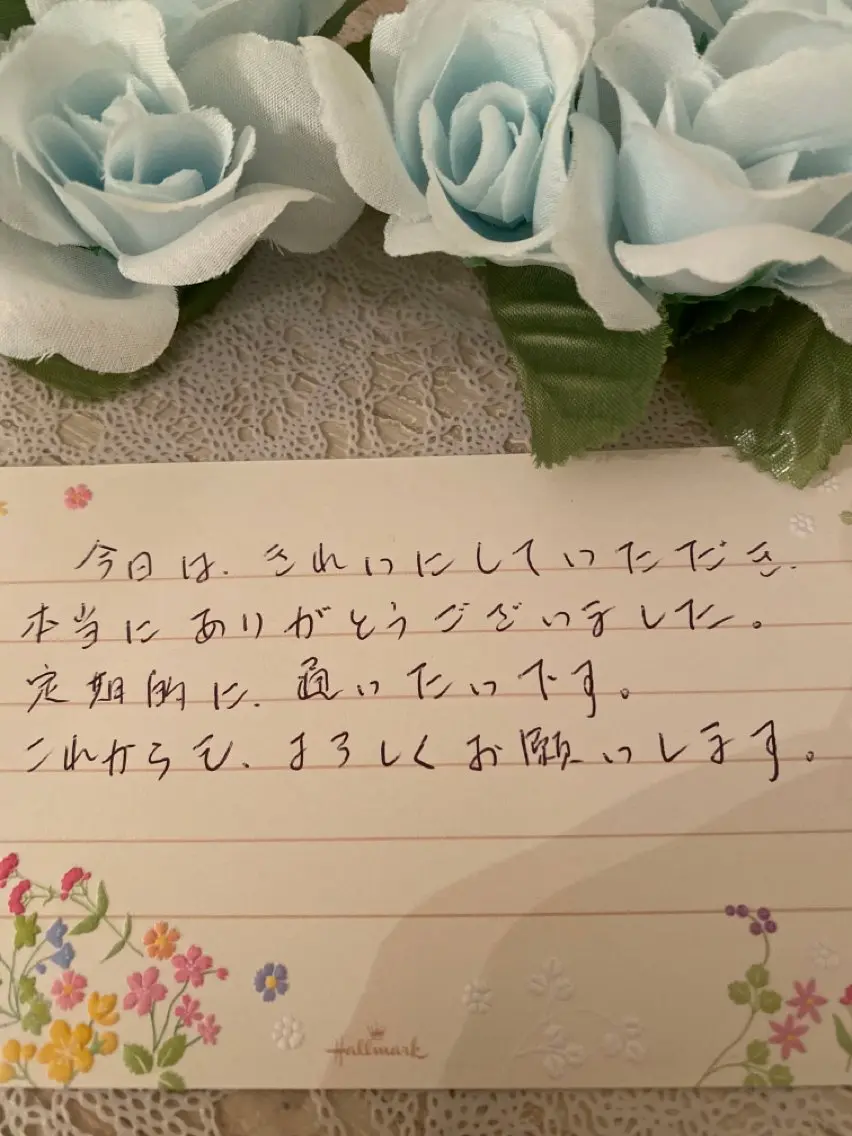 今日は、きれいにしていただき、
本当にありがとうございました。
定期的に、通いたいです。
これからも、よろしくお願いします。
Hallmark